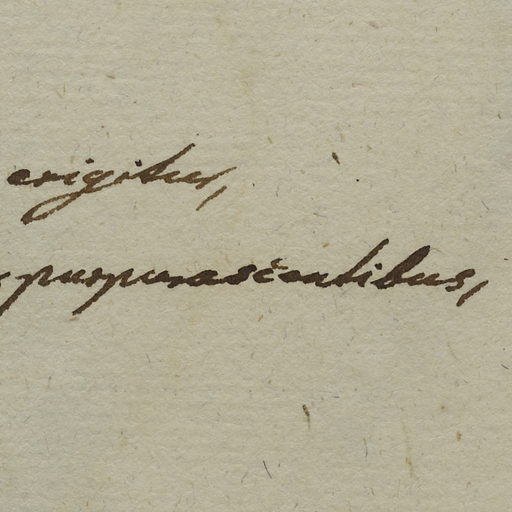 erigitur,
purpurascentibus,